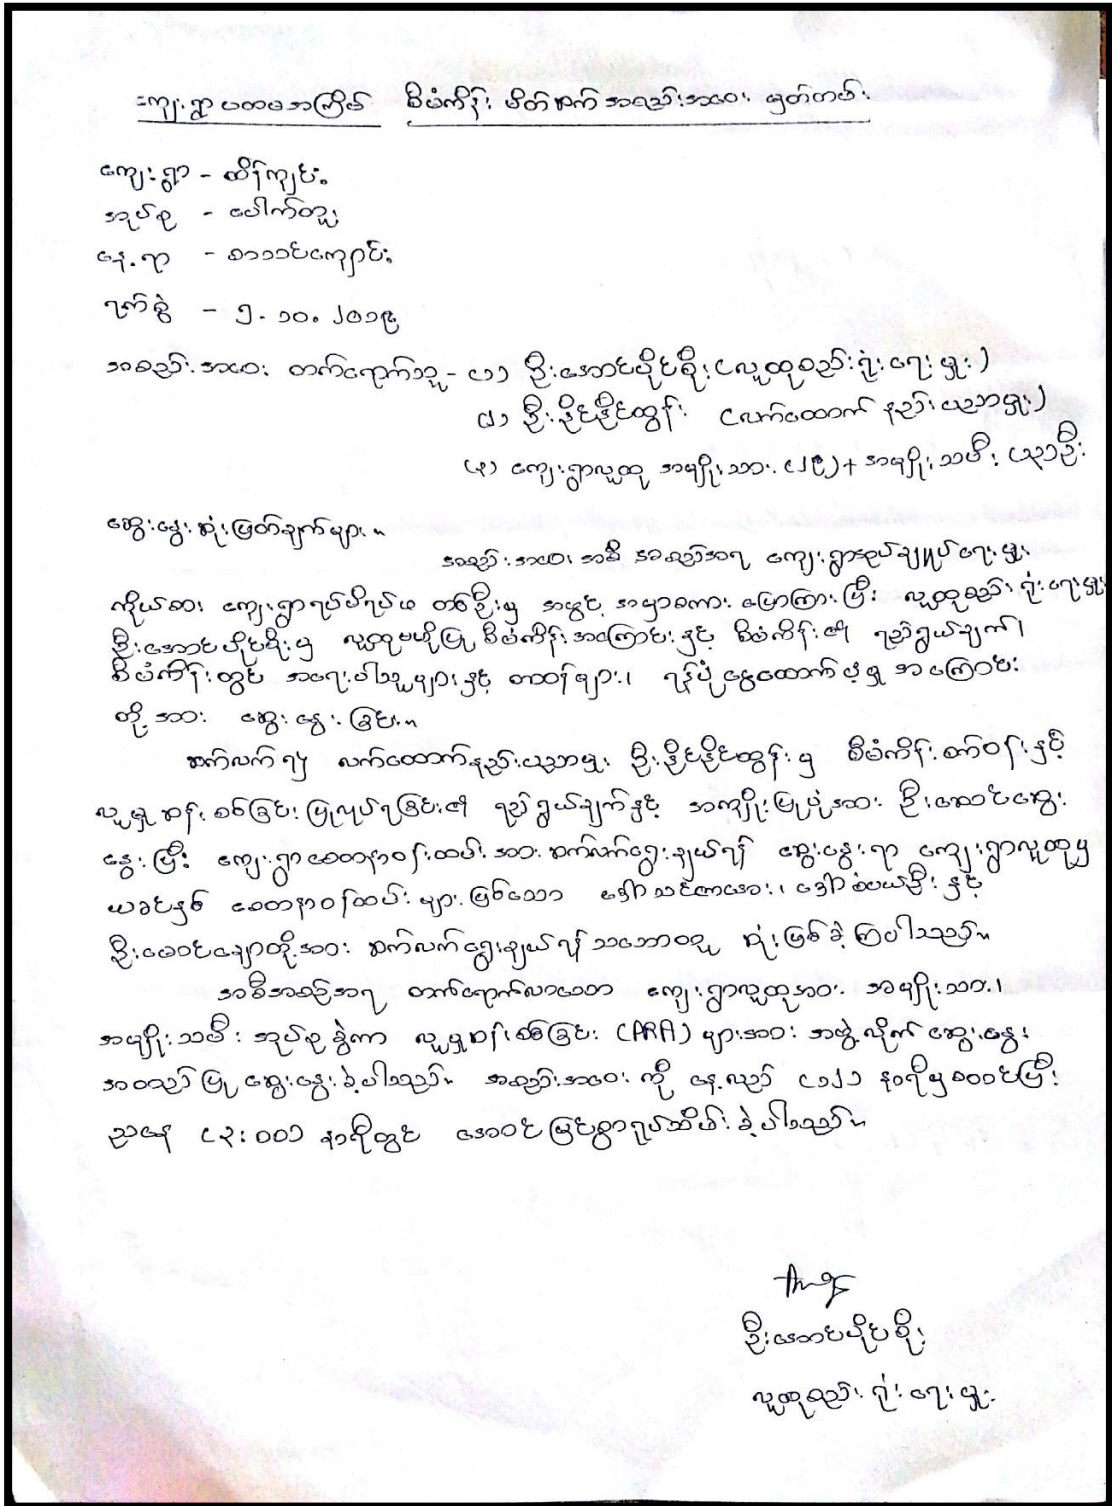 ကျေးရွာပထမအကြိမ် စီမံကိန်း မိတ်ဆက် အစည်းအဝေး မှတ်တမ်း
ကျေးရွာ - ထိန်ကျင်း
အုပ်စု - ပေါက်တူး
နေ့ရာ - စာသင်ကျောင်း
ရက်စွဲ - ၅.၁၀.၂၀၁၉
အစည်းအဝေး တက်ရောက်သူ - (၁) ဦးအောင်ပိုင်စိုး (လူထုစည်းရုံးရေးမှူး)
(၂) ဦးဒိုင်ဒိုင်ထွန်း (လက်ထောက် နည်းပညာမှူး)
(၃) ကျေးရွာလူထု အမျိုးသား (၂၉) + အမျိုးသမီး (၃၁)ဦး
ဆွေးနွေးဆုံးဖြတ်ချက်များ။
အစည်းအဝေး အစီအစဉ်အရ ကျေးရွာအုပ်ချုပ်ရေးမှူး
ကိုယ်စား ကျေးရွာရပ်မိရပ်ဖ တစ်ဦးမှ အဖွင့်အမှာစကား ပြောကြားပြီး လူထုစည်းရုံးရေးမှူး
ဦးအောင်ပိုင်စိုးမှ လူထုဗဟိုပြု စီမံကိန်းအကြောင်းနှင့် စီမံကိန်း၏ ရည်ရွယ်ချက်၊
စီမံကိန်းတွင် အရေးပါသူများနှင့် တာဝန်များ၊ ရန်ပုံငွေထောက်ပံ့မှု အကြောင်း
တို့အား ဆွေးနွေးခြင်း။
ဆက်လက်၍ လက်ထောက်နည်းပညာမှူး ဦးဒိုင်ဒိုင်ထွန်းမှ စီမံကိန်းစက်ဝန်းနှင့်
လူမှုဆန်းစစ်ခြင်း ပြုလုပ်ရခြင်း၏ ရည်ရွယ်ချက်နှင့် အကျိုးပြုပုံအား ဦးဆောင်ဆွေး
နွေးပြီး ကျေးရွာစေတနာ့ဝန်ထမ်းအား ဆက်လက်ရွေးချယ်ရန် ဆွေးနွေးရာ ကျေးရွာလူထုမှ
ယခင်နှစ် စေတနာ့ဝန်ထမ်းများဖြစ်သော ဒေါ်သင်းဇာအေး၊ ဒေါ်စံပယ်ဦး နှင့်
ဦးမောင်ချောတို့အား ဆက်လက်ရွေးချယ်ရန် သဘောတူ ဆုံးဖြတ်ခဲ့ကြပါသည်။
အစီအစဉ်အရ တက်ရောက်လာသော ကျေးရွာလူထုအား အမျိုးသား၊
အမျိုးသမီး အုပ်စုခွဲကာ လူမှုဆန်းစစ်ခြင်း (PRA) များအား အဖွဲ့လိုက် ဆွေးနွေး
အတည်ပြု ဆွေးနွေးခဲ့ပါသည်။ အစည်းအဝေးကို နေ့လည် (၁၂) နာရီမှစတင်ပြီး
ညနေ (၃:၀၀) နာရီတွင် အောင်မြင်စွာရုပ်သိမ်းခဲ့ပါသည်။
ဦးအောင်ပိုင်စိုး
လူထုစည်းရုံးရေးမှူး